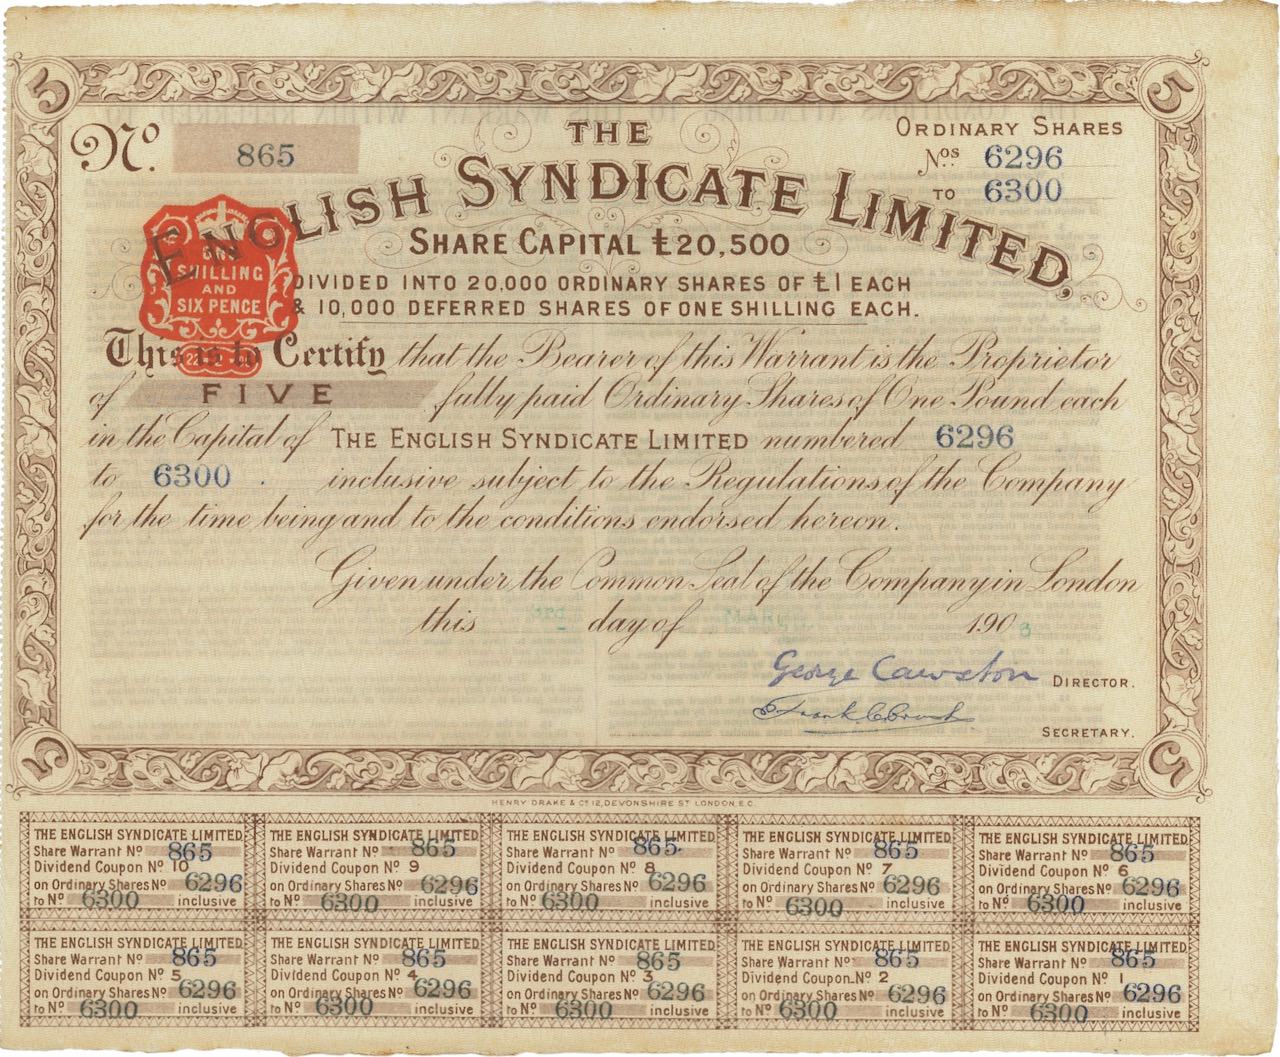 5
5
No. 865
THE
ENGLISH SYNDICATE LIMITED,
ORDINARY SHARES
Nos. 6296
TO 6300
SHARE CAPITAL £20,500
DIVIDED INTO 20,000 ORDINARY SHARES OF £1 EACH
& 10,000 DEFERRED SHARES OF ONE SHILLING EACH.
ONE
SHILLING
AND
SIX PENCE
This is to Certify that the Bearer of this Warrant is the Proprietor
of FIVE fully paid Ordinary Shares of One Pound each
in the Capital of THE ENGLISH SYNDICATE LIMITED numbered 6296
to 6300. inclusive subject to the Regulations of the Company
for the time being and to the conditions endorsed hereon.
Given under the Common Seal of the Company in London
this 3rd day of MARCH 1903
George Cawston DIRECTOR.
SECRETARY.
5
5
HENRY DRAKE & Co. 12, DEVONSHIRE ST LONDON, E.C.
THE ENGLISH SYNDICATE LIMITED
Share Warrant No 865
Dividend Coupon No 10
on Ordinary Shares No 6296
to No 6300 inclusive
THE ENGLISH SYNDICATE LIMITED
Share Warrant No 865
Dividend Coupon No 9
on Ordinary Shares No 6296
to No 6300 inclusive
THE ENGLISH SYNDICATE LIMITED
Share Warrant No 865.
Dividend Coupon No 8
on Ordinary Shares No 6296
to No 6300 inclusive
THE ENGLISH SYNDICATE LIMITED
Share Warrant No 865
Dividend Coupon No 7
on Ordinary Shares No 6296
to No 6300 inclusive
THE ENGLISH SYNDICATE LIMITED
Share Warrant No 865
Dividend Coupon No 6
on Ordinary Shares No 6296
to No 6300 inclusive
THE ENGLISH SYNDICATE LIMITED
Share Warrant No 865
Dividend Coupon No 5
on Ordinary Shares No 6296
to No 6300 inclusive
THE ENGLISH SYNDICATE LIMITED
Share Warrant No 865
Dividend Coupon No 4
on Ordinary Shares No 6296
to No 6300 inclusive
THE ENGLISH SYNDICATE LIMITED
Share Warrant No 865
Dividend Coupon No 3
on Ordinary Shares No 6296
to No 6300 inclusive
THE ENGLISH SYNDICATE LIMITED
Share Warrant No 865
Dividend Coupon No 2
on Ordinary Shares No 6296
to No 6300 inclusive
THE ENGLISH SYNDICATE LIMITED
Share Warrant No 865
Dividend Coupon No 1
on Ordinary Shares No 6296
to No 6300 inclusive